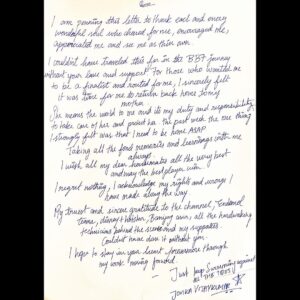 I am penning this letter to thank each and every
wonderful soul who cheered for me, encouraged me,
appreciated me and see me as their own.
I couldn't have traveled this far in the BB7 journey
without your love and support. For those who wanted me
to be a finalist and rooted for me, I sincerely felt
it was time for me to return back home to my
mother.
She means the world to me and its my duty and responsibility
to take care of her and protect her. The past week the one thing
I strongly felt was that I need to be home ASAP
Taking all the fond memories and learnings with me
always
I wish all my dear housemates all the very best
and may the best player win
I regret nothing, I acknowledge my rights and wrongs I
have made along the way
My truest and sincere gratitude to the channel, Endemol
Team, disney+ hotstar, Banijay asia, all the hardworking
technicians behind the scenes and my supporters
Couldn't have done it without you.
I hope to stay in your heart, forevermore through
my work moving forward.
- Just keep Swimming against
ALL THE TIDES
JOVIKA VIJAYKUMAR